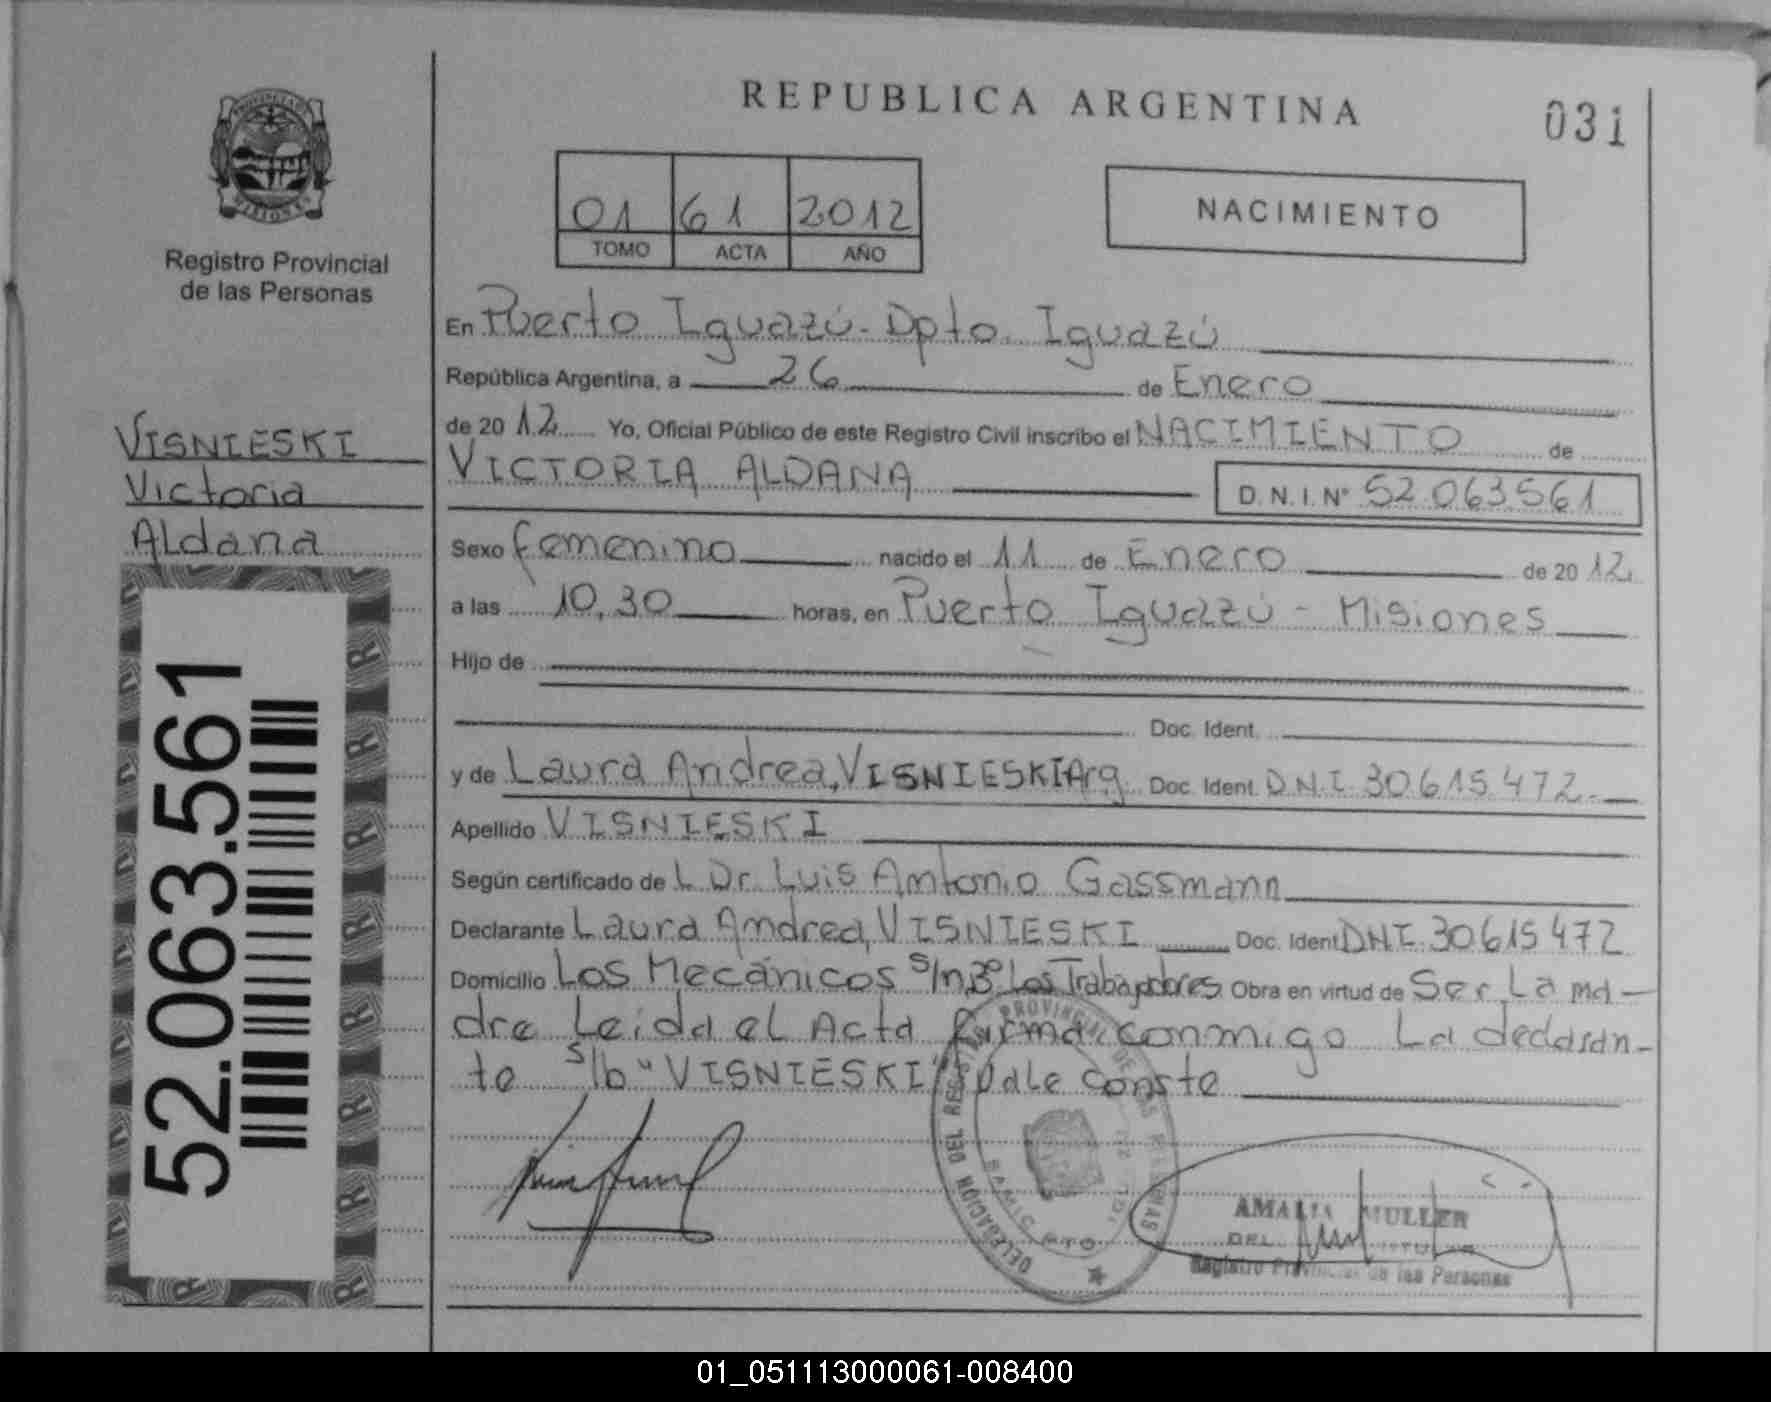 REPUBLICA ARGENTINA
031
PROVINCIA DE MISIONES
Registro Provincial
de las Personas
01 61 2012
TOMO ACTA AÑO
NACIMIENTO
En Puerto Iguazú - Dpto. Iguazú
República Argentina, a 26 de Enero
de 2012 Yo, Oficial Público de este Registro Civil inscribo el NACIMIENTO de
VICTORIA ALDANA D.N.I. Nº 52.063.561
VISNIESKI
Victoria
Aldana
Sexo femenino nacido el 11 de Enero de 2012
a las 10,30 horas, en Puerto Iguazú - Misiones
Hijo de
Doc. Ident.
y de Laura Andrea, VISNIESKI Arg. Doc. Ident. D.N.I. 30615472
Apellido VISNIESKI
Según certificado de L Dr. Luis Antonio Gassmann
Declarante Laura Andrea, VISNIESKI Doc. Ident DNI. 30615472
Domicilio Los Mecánicos S/n Bº Los Trabajadores Obra en virtud de Ser La ma-
dre Leida el Acta firma conmigo La declaran-
te S/b "VISNIESKI" Vale Conste
52.063.561
DELEGACIÓN DEL REGISTRO PROVINCIAL DE LAS PERSONAS
AMALIA MULLER
Registro Provincial de las Personas
01_051113000061-008400